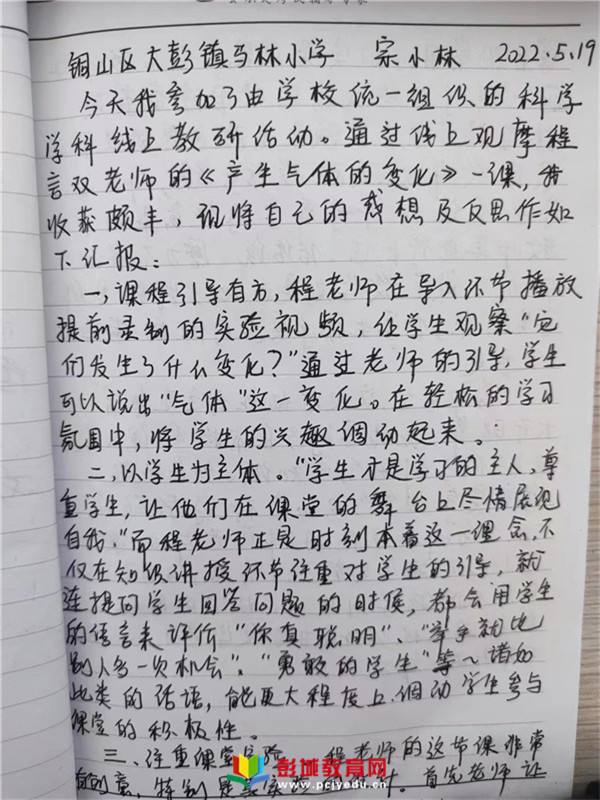 铜山区大彭镇马林小学 宗小林 2022.5.19
今天我参加了由学校统一组织的科学
学科线上教研活动。通过线上观摩程
言双老师的《产生气体的变化》一课,我
收获颇丰,现将自己的感想及反思作如
下汇报:
一,课程引导有方,程老师在导入环节播放
提前录制的实验视频,让学生观察“它
们发生了什么变化?”通过老师的引导,学生
可以说出“气体”这一变化。在轻松的学习
氛围中,将学生的兴趣调动起来。
二,以学生为主体。“学生才是学习的主人,尊
重学生,让他们在课堂的舞台上尽情展现
自我,”而程老师正是时刻本着这一理念,不
仅在知识讲授环节注重对学生的引导,就
连提问学生回答问题的时候,都会用学生
的语言来评价“你真聪明”、“举手就比
别人多一次机会”、“勇敢的学生”等~诸如
此类的话语,能更大程度上调动学生参与
课堂的积极性。
三、注重课堂实验 程老师的这节课非常
有创意,特别是 实 。首先老师让
彭城教育网
www.pcjyedu.cn